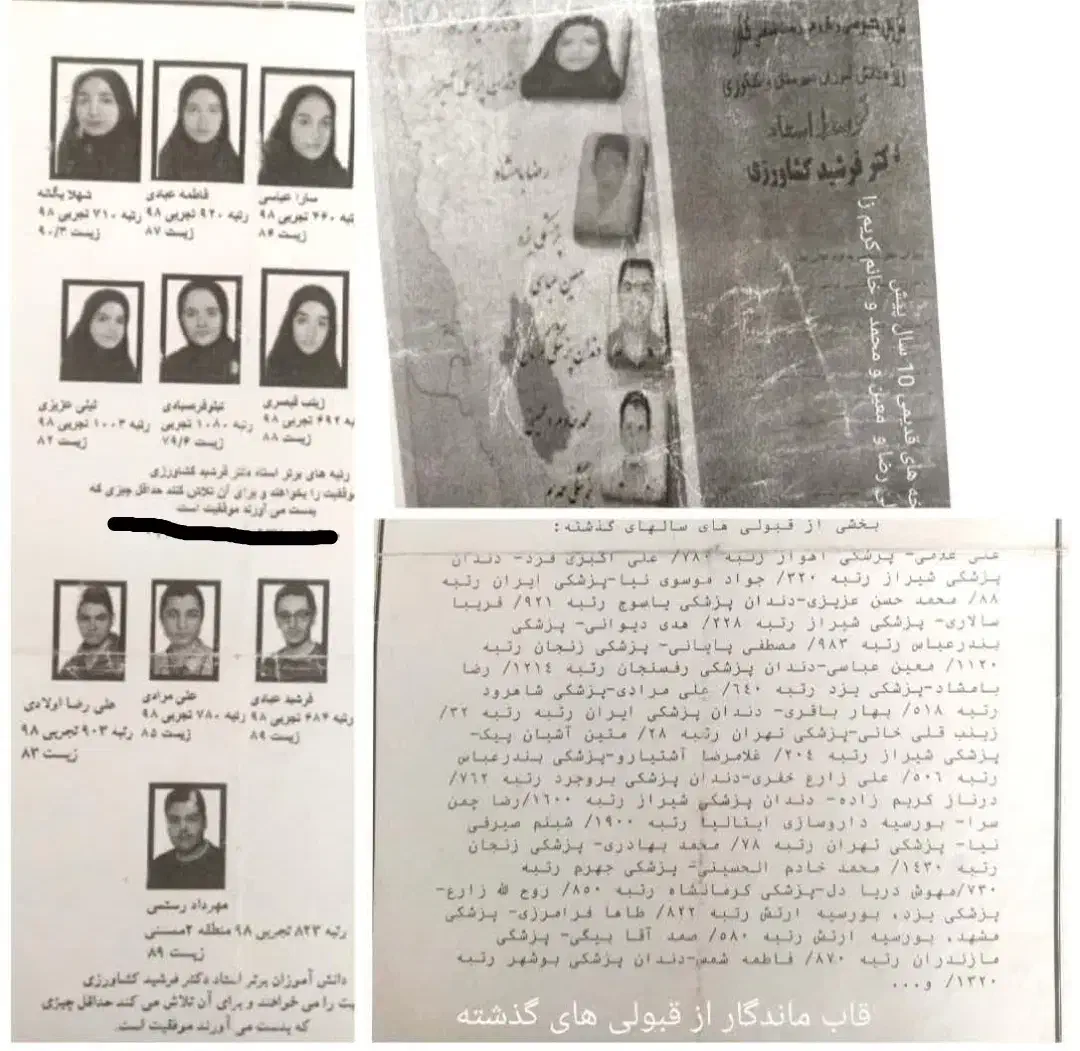 سارا عباسی
فاطمه عبادی
شهلا یگانه
رتبه ۴۶۰ تجربی ۹۸
رتبه ۹۲۰ تجربی ۹۸
رتبه ۷۱۰ تجربی ۹۸
زیست ۸۶
زیست ۸۷
زیست ۹۰/۳
زینب قیصری
نیلوفر صیادی
لیلی عزیزی
۶۹۲ تجربی ۹۸
رتبه ۱۰۸۰ تجربی ۹۸
رتبه ۱۰۰۳ تجربی ۹۸
زیست ۸۸
زیست ۷۹/۶
زیست ۸۲
رتبه های برتر استاد دکتر فرشید کشاورزی
موفقیت را بخواهند و برای آن تلاش کنند حداقل چیزی که
بدست می آورند موفقیت است
فرشید عبادی
علی مرادی
علی رضا اولادی
رتبه ۶۸۴ تجربی ۹۸
رتبه ۷۸۰ تجربی ۹۸
رتبه ۹۰۳ تجربی ۹۸
زیست ۸۹
زیست ۸۵
زیست ۸۳
مهرداد رستمی
رتبه ۸۲۳ تجربی ۹۸ منطقه ۲ممسنی
زیست ۸۹
دانش آموزان برتر استاد دکتر فرشید کشاورزی
را می خواهند و برای آن تلاش می کند حداقل چیزی
که بدست می آورند موفقیت است.
دندان پزشکی
رضا بامشاد
پزشکی یزد
معین عباسی
دندان پزشکی
پزشکی جهرم
دانش آموزان دبیرستان و کنکوری
توسط استاد
دکتر فرشید کشاورزی
های قدیمی 10 سال پیش
رضا و معین و محمد و خانم کریم زا
بخشی از قبولی های سالهای گذشته:
علی غلامی- پزشکی اهواز رتبه ۷۸۴/ علی اکبری فرد- دندان
پزشکی شیراز رتبه ۳۲۰/ جواد موسوی نیا-پزشکی ایران رتبه
۸۸/ محمد حسن عزیزی-دندان پزشکی یاسوج رتبه ۹۲۱/ فریبا
سالاری- پزشکی شیراز رتبه ۲۲۸/ هدی دیوانی- پزشکی
بندرعباس رتبه ۹۸۳/ مصطفی پاپانی- پزشکی زنجان رتبه
۱۱۲۰/ معین عباسی-دندان پزشکی رفسنجان رتبه ۱۲۱۴/ رضا
بامشاد-پزشکی یزد رتبه ۶۴۰/ علی مرادی-پزشکی شاهرود
رتبه ۵۱۸/ بهار باقری- دندان پزشکی ایران رتبه رتبه ۳۲/
زینب قلی خانی-پزشکی تهران رتبه ۲۸/ متین آشیان پیک-
پزشکی شیراز رتبه ۲۰۴/ غلامرضا آشتیارو-پزشکی بندرعباس
رتبه ۵۰۶/ علی زارع خفری-دندان پزشکی بروجرد رتبه ۷۶۲/
درناز کریم زاده- دندان پزشکی شیراز رتبه ۱۶۰۰/رضا چمن
سرا- بورسیه داروسازی ایتالیا رتبه ۱۹۰۰/ شبنم صیرفی
نیا- پزشکی تهران رتبه ۷۸/ محمد بهادری- پزشکی زنجان
رتبه ۱۴۳۰/ محمد خادم الحسینی- پزشکی جهرم رتبه
۷۳۰/مهوش دریا دل-پزشکی کرمانشاه رتبه ۸۵۰/ روح الله زارع-
پزشکی یزد، بورسیه ارتش رتبه ۸۲۲/ طاها فرامرزی- پزشکی
مشهد، بورسیه ارتش رتبه ۵۸۰/ صمد آقا بیگی- پزشکی
مازندران رتبه ۸۷۰/ فاطمه شمس-دندان پزشکی بوشهر رتبه
۱۳۲۰/ و...
قاب ماندگار از قبولی های گذشته